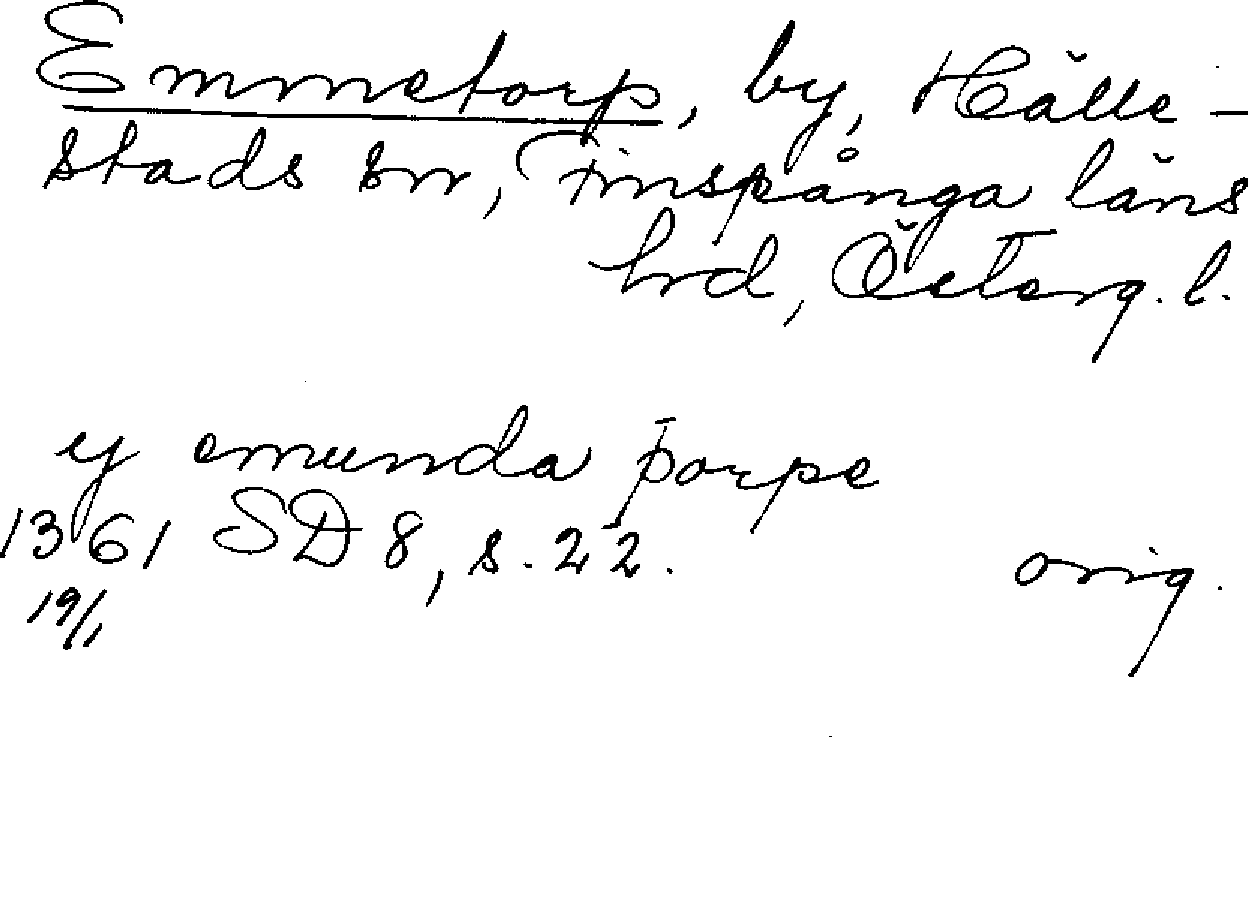 Emmetorp, by, Hälle-
stads sn, Finspånga läns
hrd, Österg. l.
y emunda þorpe
1361 SD 8, s. 22. orig.
19/1